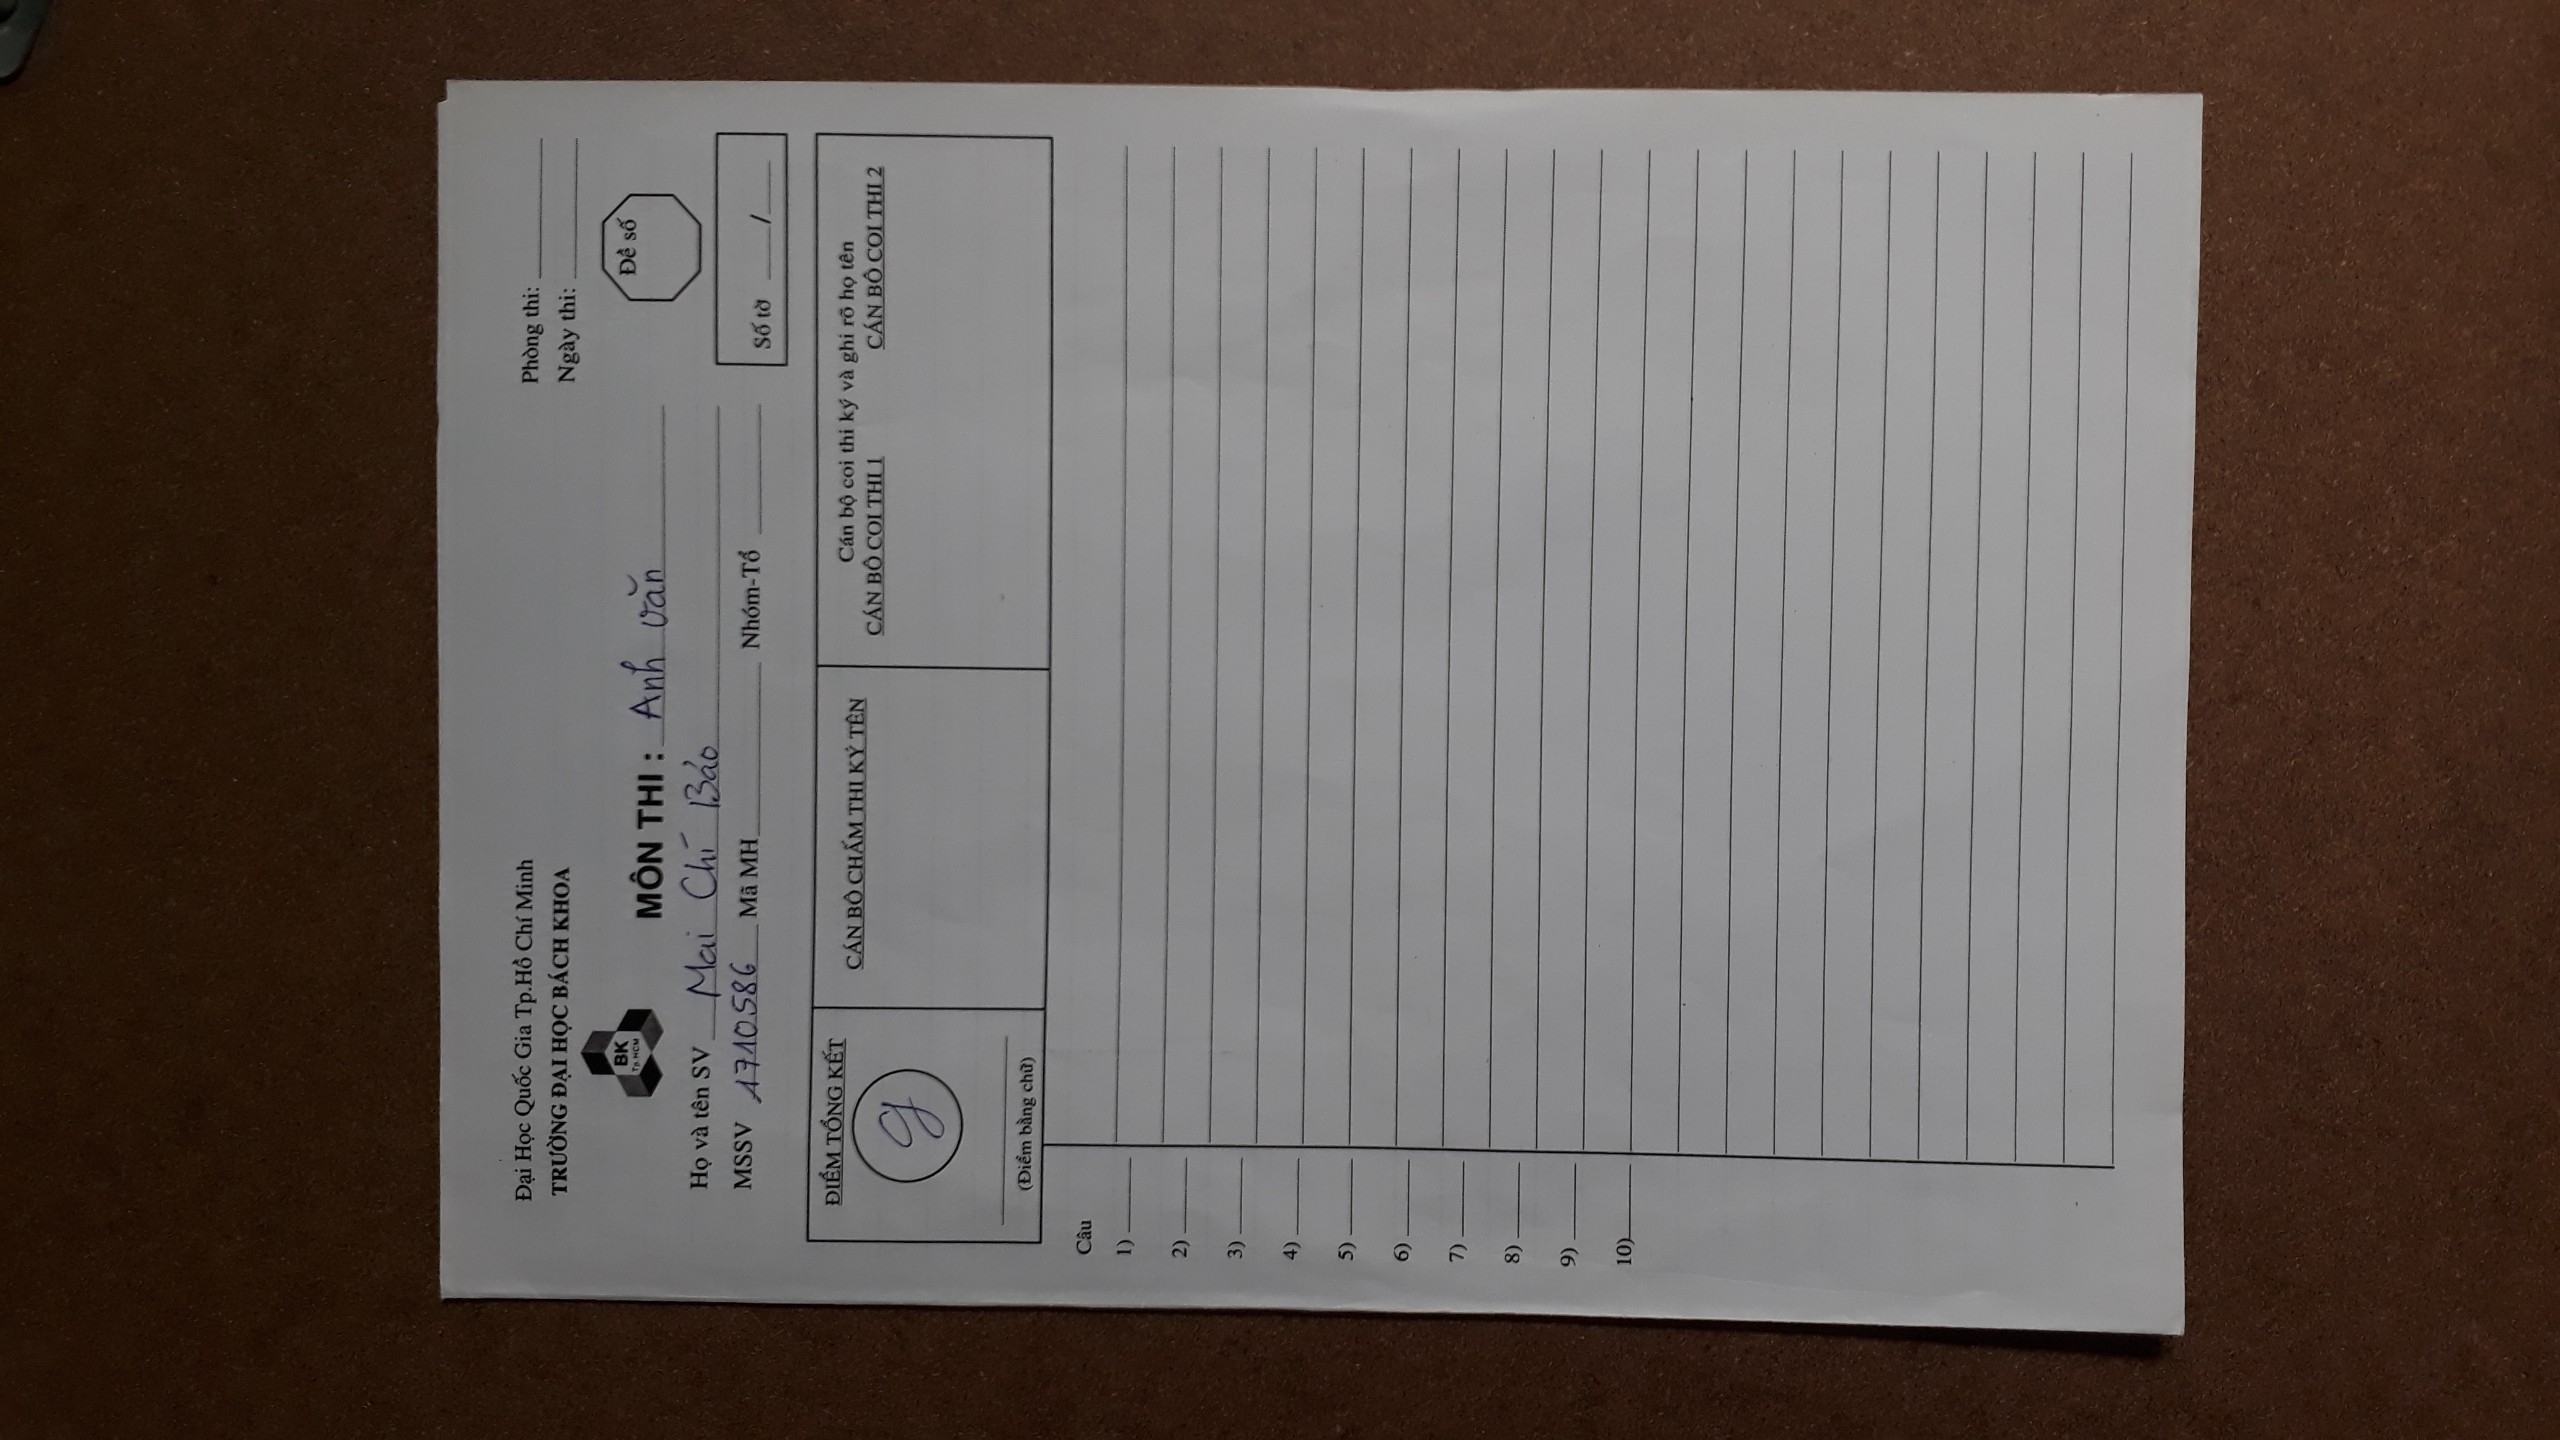 Đại Học Quốc Gia Tp.Hồ Chí Minh
TRƯỜNG ĐẠI HỌC BÁCH KHOA
Phòng thi:
Ngày thi:
BK
Tp.HCM
Đề số
MÔN THI : Anh văn
Họ và tên SV Mai Chí Bảo
MSSV 1710586 Mã MH Nhóm-Tổ
Số tờ /
ĐIỂM TỔNG KẾT
9
(Điểm bằng chữ)
CÁN BỘ CHẤM THI KÝ TÊN
Cán bộ coi thi ký và ghi rõ họ tên
CÁN BỘ COI THI 1 CÁN BỘ COI THI 2
Câu
1)
2)
3)
4)
5)
6)
7)
8)
9)
10)